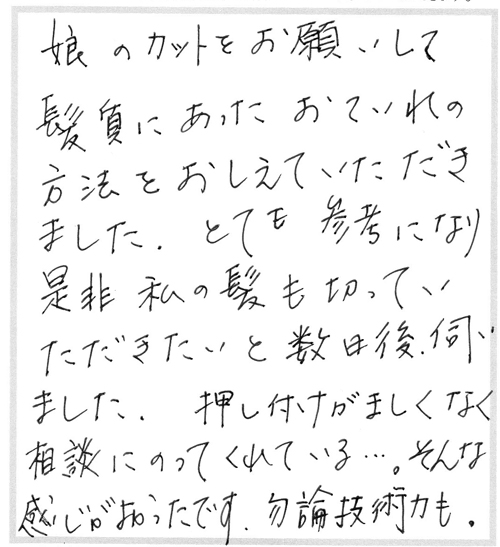 娘のカットをお願いして
髪質にあったおていれの
方法をおしえていただき
ました．とても参考になり
是非私の髪も切ってい
ただきたいと数日後、伺い
ました．押し付けがましくなく
相談にのってくれている…。そんな
感じがあったです．勿論技術力も。